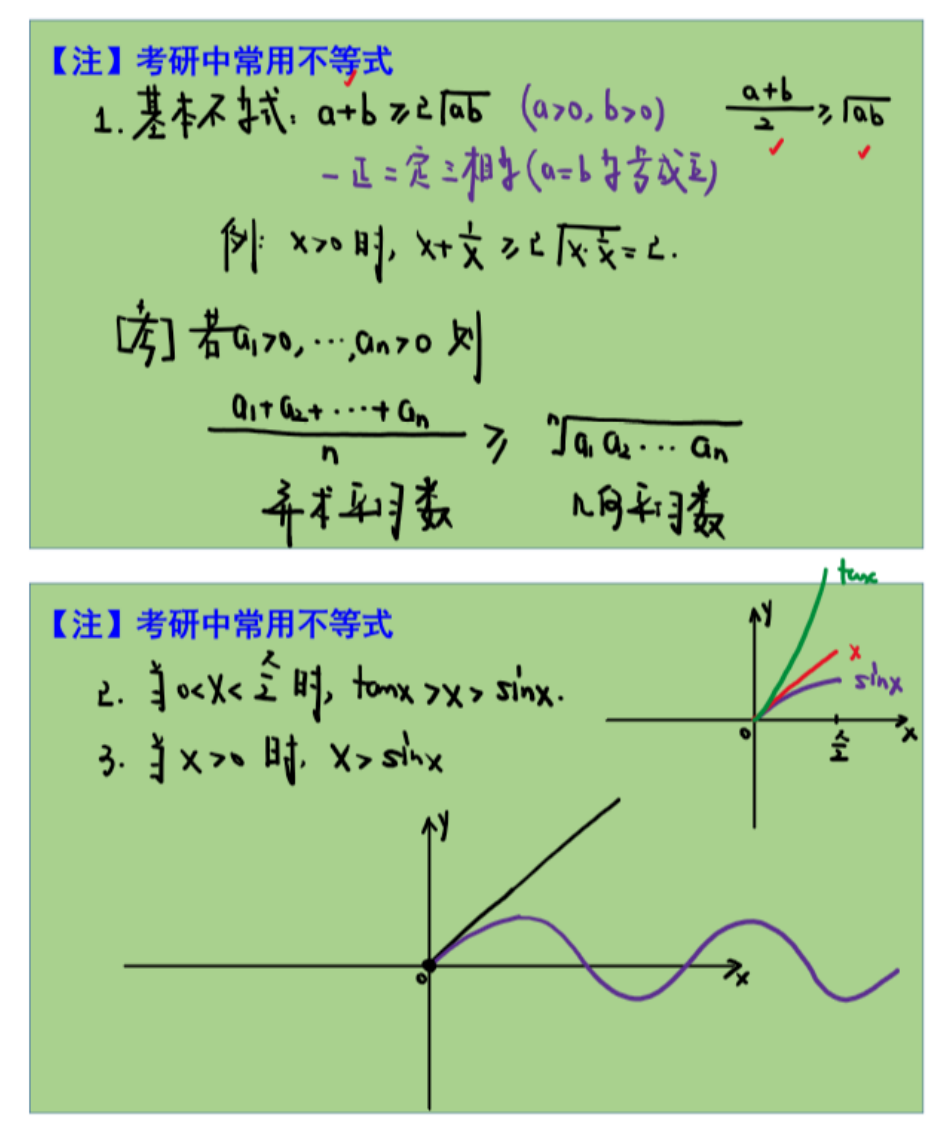 【注】考研中常用不等式
1. 基本不等式: a+b ≥ 2√ab (a>0, b>0) (a+b)/2 ≥ √ab
一正二定三相等(a=b等号成立)
例: x>0 时, x+1/x ≥ 2√(x·1/x) = 2.
[考] 若a₁>0, ⋯, aₙ>0 则
(a₁+a₂+⋯+aₙ)/n ≥ ⁿ√(a₁a₂⋯aₙ)
算术平均数 几何平均数
【注】考研中常用不等式
tanx
y
x
sinx
0
π/2
x
2. 当 0<x<π/2 时, tanx>x>sinx.
3. 当 x>0 时, x>sinx
y
0
x